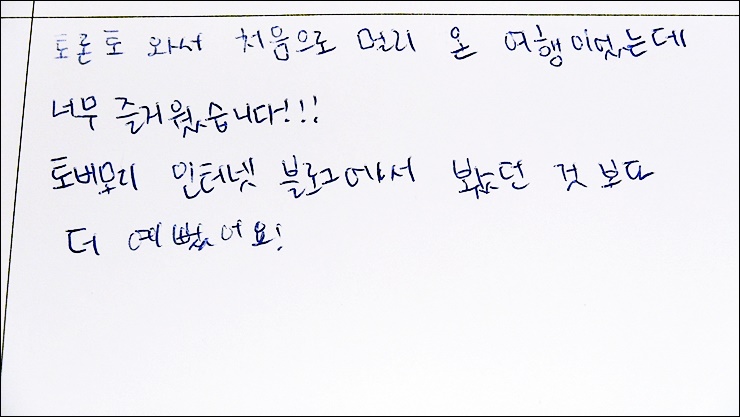 토론토 와서 처음으로 멀리 온 여행이었는데
너무 즐거웠습니다!!!
토버모리 인터넷 블로그에서 봤던 것 보다
더 예뻤어요!